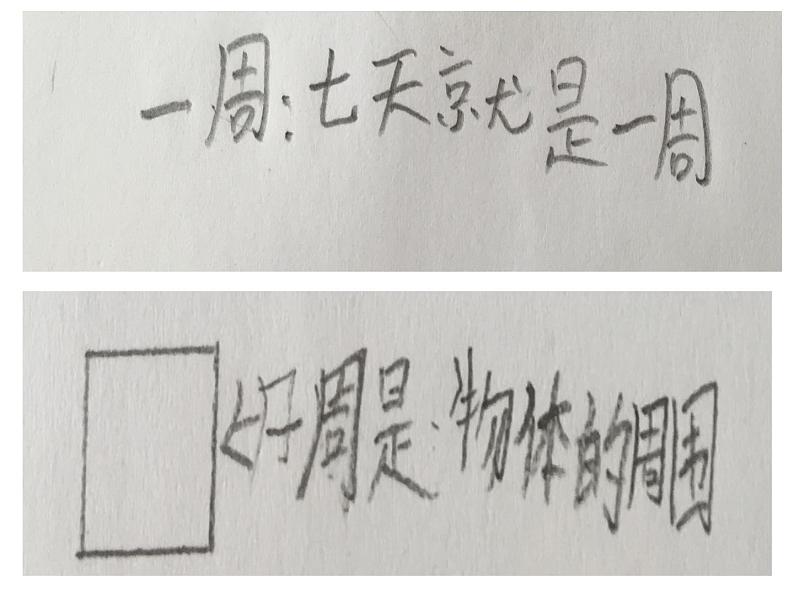 一周:七天就是一周
周是:物体的周围